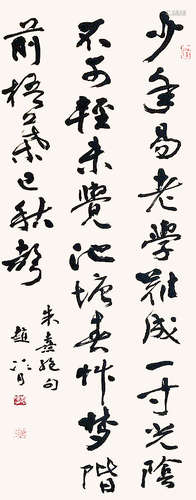 少年易老學難成一寸光陰
不可輕未覺池塘春艸夢階
前梧葉已秋聲
朱熹絕句
趙冷月